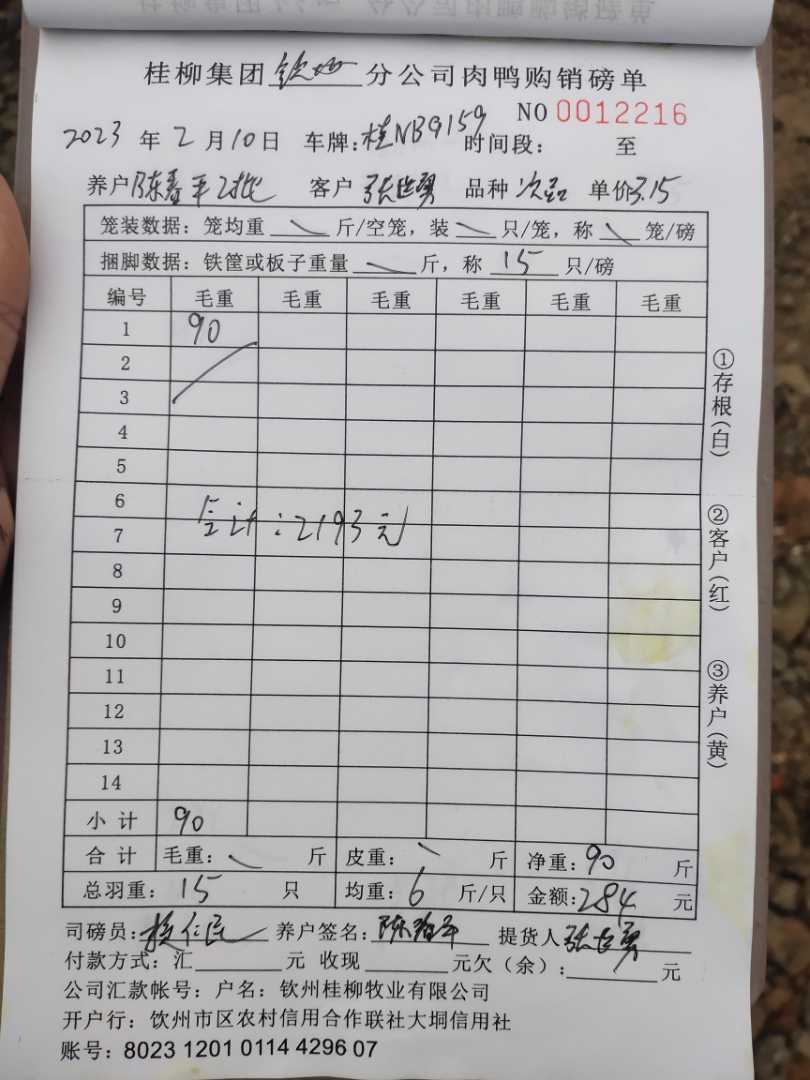 桂柳集团钦州分公司肉鸭购销磅单
NO 0012216
2023 年 2 月 10 日 车牌:桂NB9159 时间段: 至
养户 陈春平2批 客户 张世勇 品种 次品 单价3.15
笼装数据:笼均重 斤/空笼,装 只/笼,称 笼/磅
捆脚数据:铁筐或板子重量 斤,称 15 只/磅
编号 毛重 毛重 毛重 毛重 毛重 毛重
1 90
2
3
4
5
6
合计:2193元
7
8
9
10
11
12
13
14
小计 90
合计 毛重: 斤 皮重: 斤 净重:90 斤
总羽重: 15 只 均重: 6 斤/只 金额:284 元
司磅员: 仁民 养户签名:陈春平 提货人张世勇
付款方式:汇 元 收现 元欠(余): 元
公司汇款帐号:户名:钦州桂柳牧业有限公司
开户行:饮州市区农村信用合作联社大垌信用社
账号:8023 1201 0114 4296 07
①存根(白)
②客户(红)
③养户(黄)